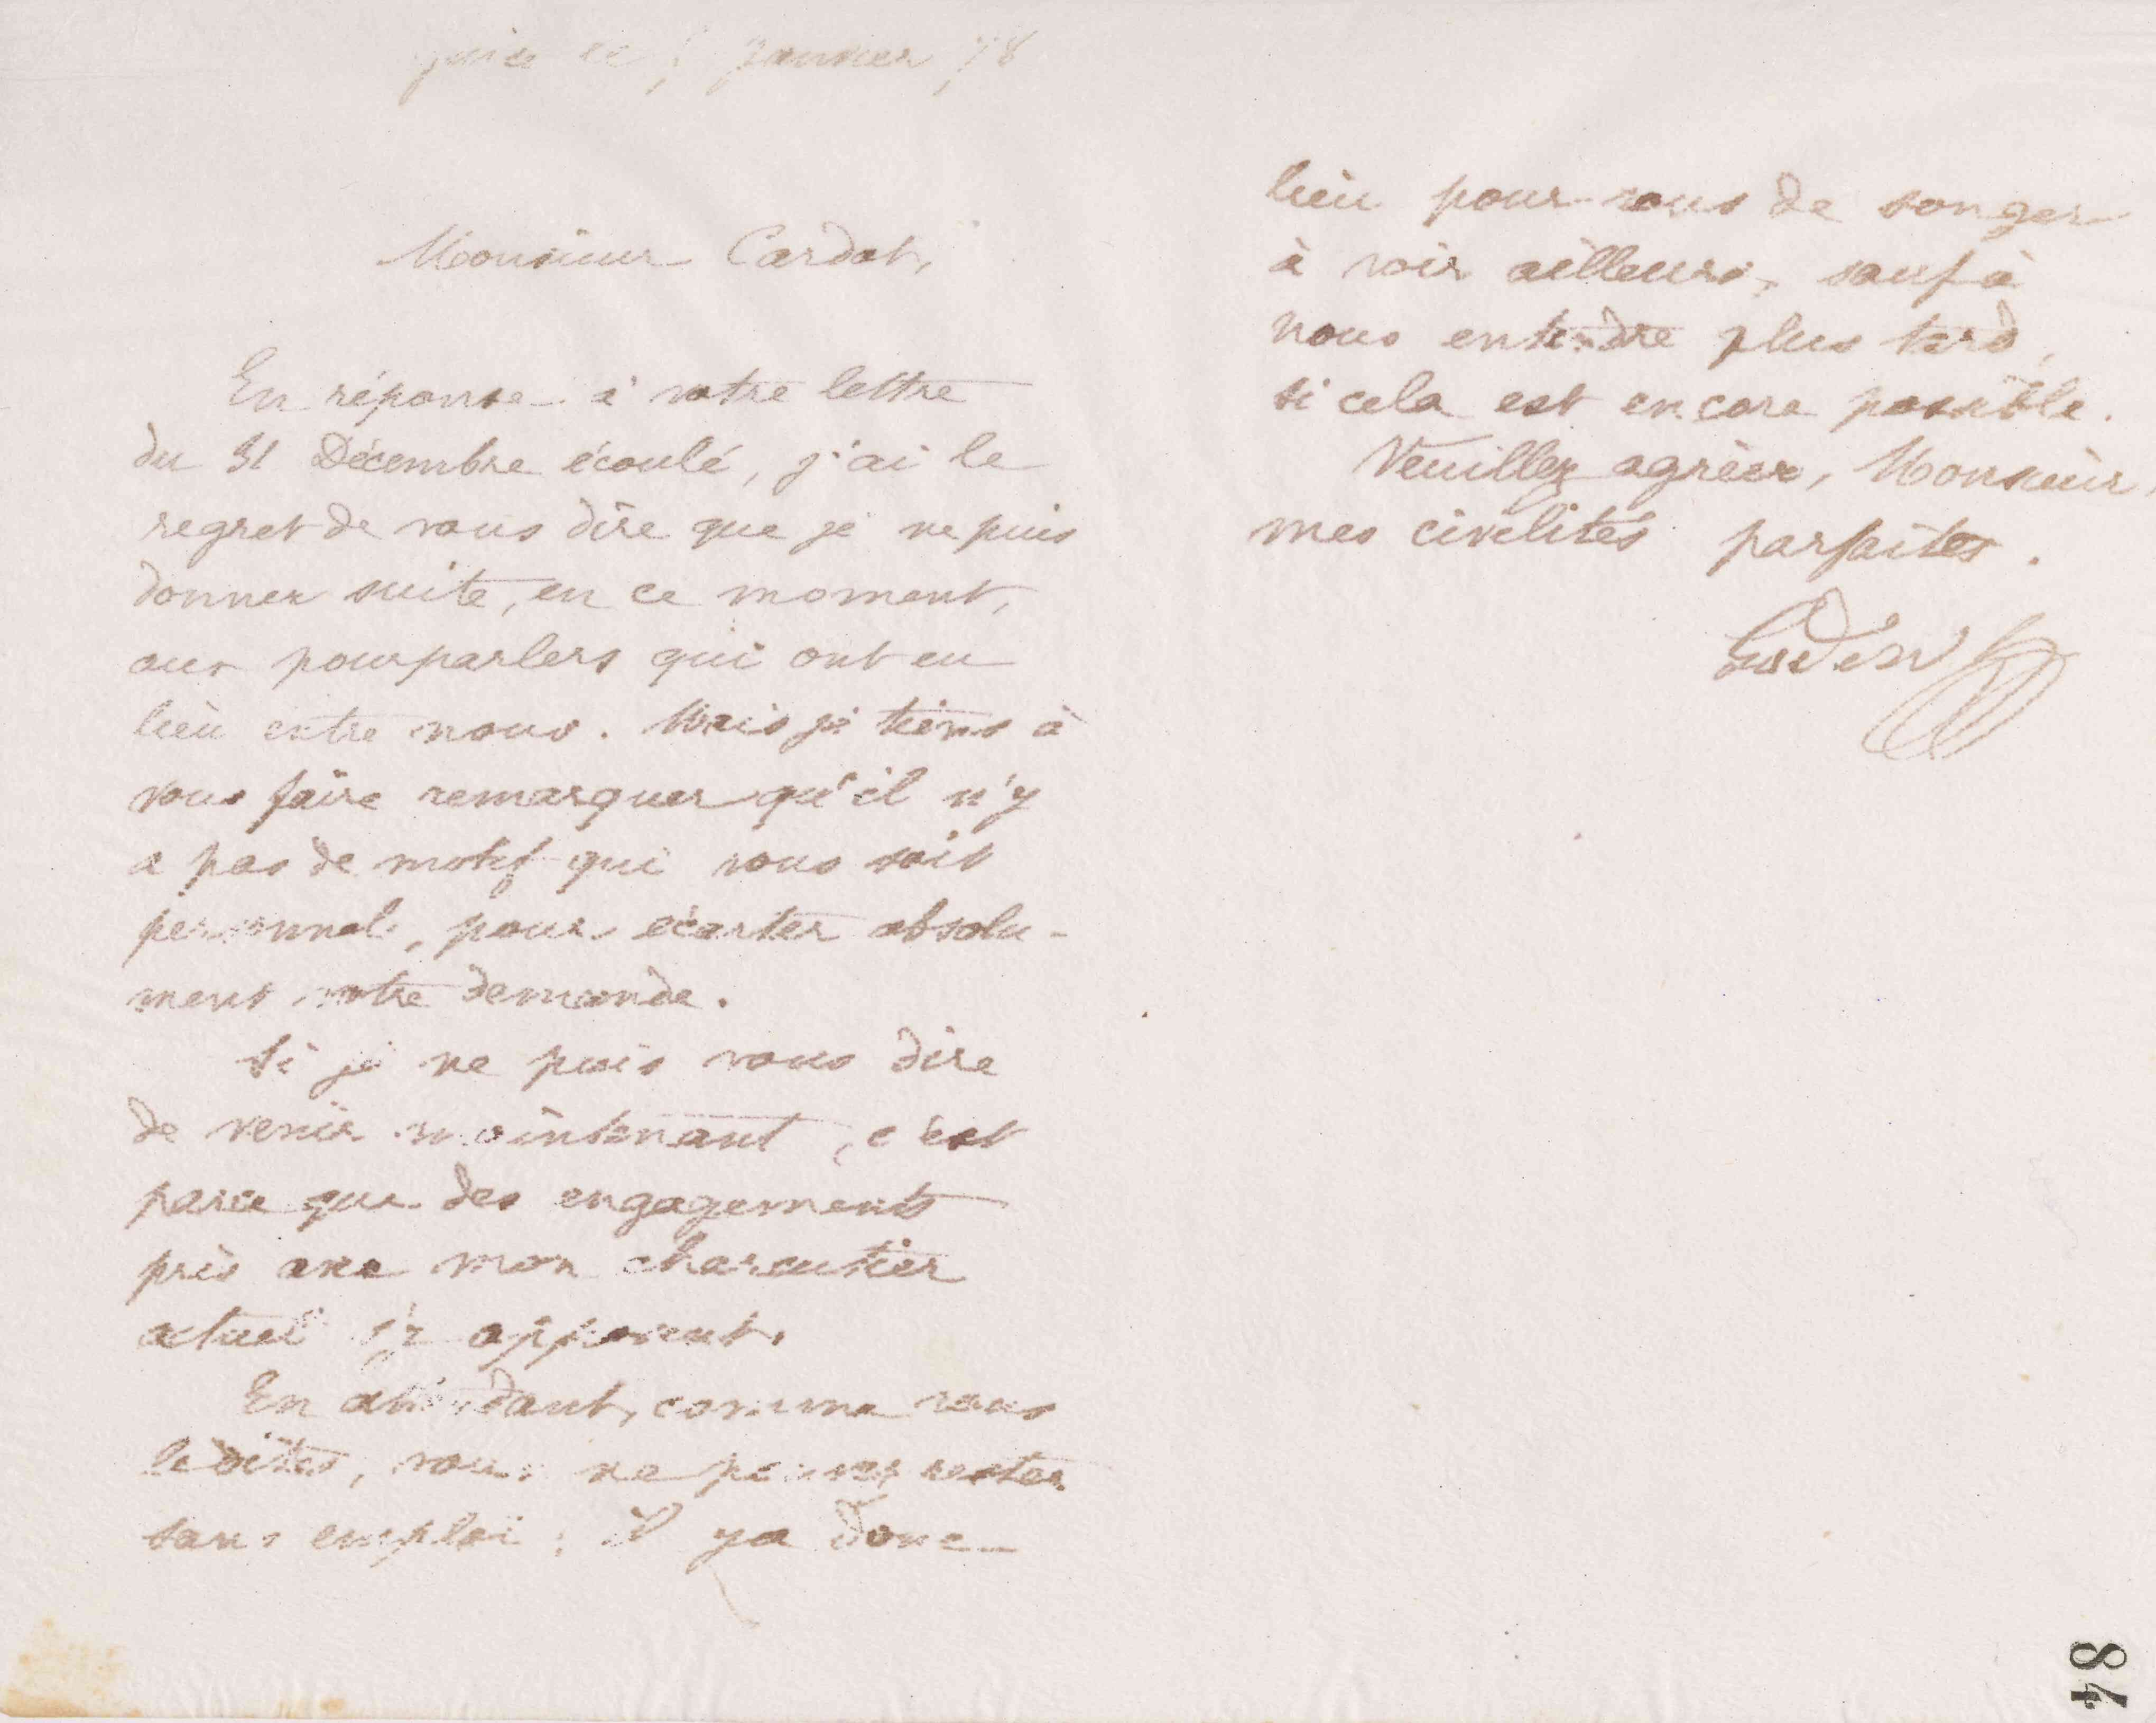 Guise le 5 Janvier 78
Monsieur Cardot,
En réponse à votre lettre
du 31 Décembre écoulé, j'ai le
regret de vous dire que je ne puis
donner suite, en ce moment,
aux pourparlers qui ont eu
lieu entre nous. Mais je tiens à
vous faire remarquer qu'il n'y
a pas de motif qui vous soit
personnel, pour écarter absolu-
ment votre demande.
Si je ne puis vous dire
de venir maintenant, c'est
parce que des engagements
pris avec mon charcutier
actuel s'y opposent.
En attendant, comme vous
le dites, vous ne pouvez rester
sans emploi ; il y a donc
lieu pour vous de songer
à voir ailleurs, sauf à
nous entendre plus tard,
si cela est encore possible.
Veuillez agréer, Monsieur,
mes civilités parfaites.
Godin
84